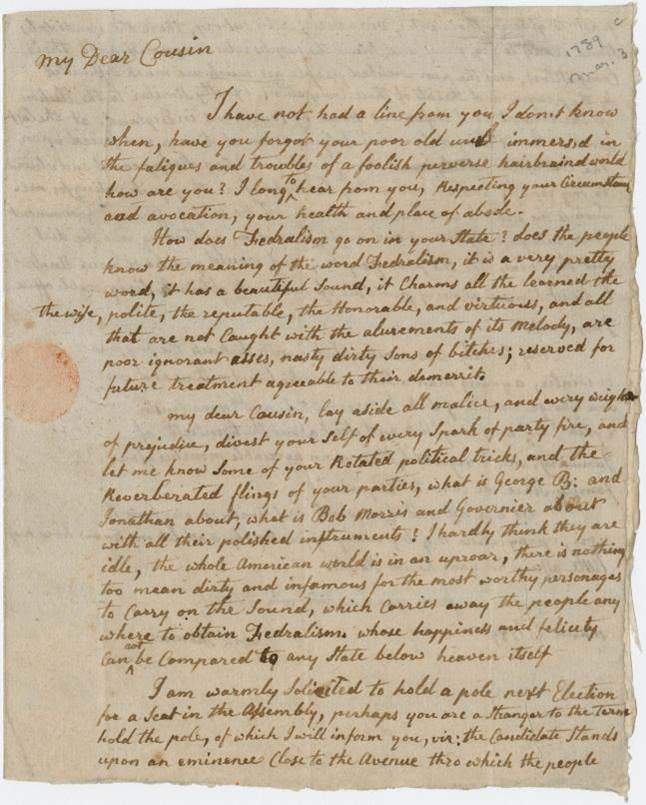 1789
Mar. 3
My Dear Cousin
I have not had a line from you I don't know
when, have you forgot your poor old immersed in
the fatigues and troubles of a foolish perverse hairbraind world
how are you? I long to hear from you, Respecting your Circumstan
and avocation, your health and place of abode.
How does Fedralism go on in your State? does the people
know the meaning of the word Fedralism, it is a very pretty
word, it has a beautiful Sound, it Charms all the learned the
the wise, polite, the reputable, the Honorable, and virtuous, and all
that are not Caught with the alurements of its Melody, are
poor ignorant asses, nasty dirty Sons of bitches; reserved for
future treatment agreeable to their demerrit.
My dear Cousin, lay aside all malice, and every weight
of prejudice, divest your Self of every Spark of party fire, and
let me know Some of your Rotated political tricks, and the
Reverberated flings of your parties, what is George B: and
Jonathan about, what is Bob Morris and Governier about
with all their polished instruments? I hardly think they are
idle, the whole American world is in an uproar, there is nothing
too mean dirty and infamous for the most worthy personages
to Carry on the Sound, which Carries away the people any
where to obtain Fedralism. whose happiness and felicity
Can not be Compared to any State below heaven itself
I am warmly Solicited to hold a pole next Election
for a Seat in the Assembly, perhaps you are a Stranger to the Term
hold the pole, of which I will inform you, viz: the Candidate Stands
upon an eminence Close to the Avenue thro which the people